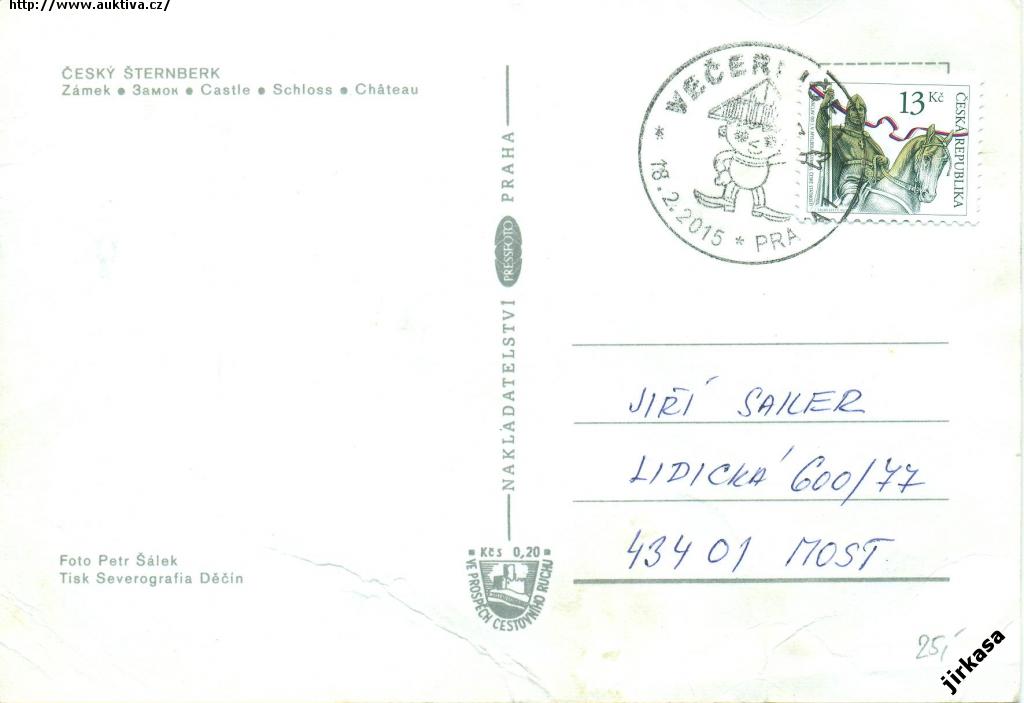 http://www.auktiva.cz/
ČESKÝ ŠTERNBERK
Zámek ● Замок ● Castle ● Schloss ● Château
13 Kč
ČESKÁ REPUBLIKA
* 18.2.2015 * PRA
NAKLADATELSTVÍ PRESSFOTO PRAHA
JIŘÍ SAILER
LIDICKÁ 600/77
434 01 MOST
Foto Petr Šálek
Tisk Severografia Děčín
Kčs 0,20
VE PROSPĚCH CESTOVNÍHO RUCHU
25,-
jirkasa